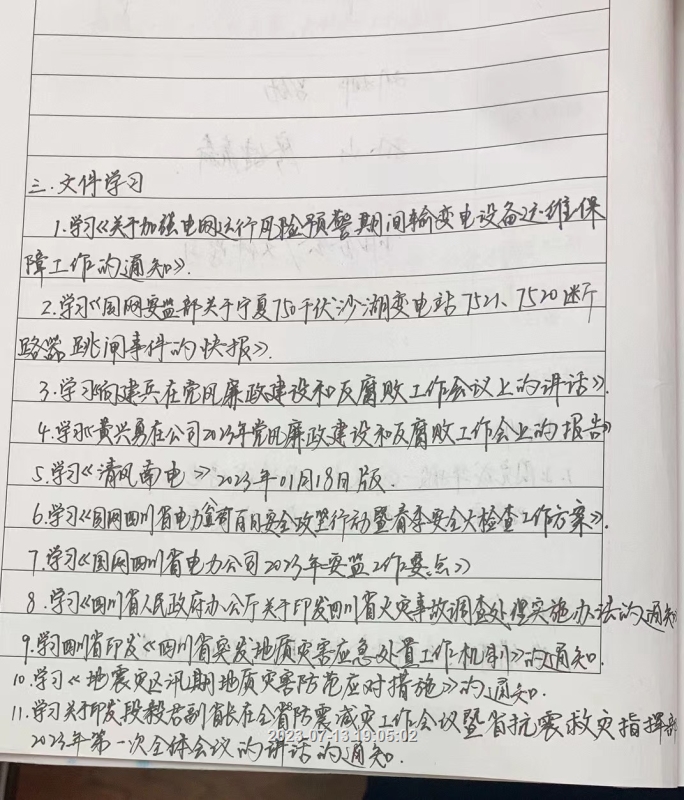 三.文件学习
1.学习《关于加强电网运行风险预警期间输变电设备运维保
障工作的通知》.
2.学习《国网安监部关于宁夏750千伏沙湖变电站7521、7520断
路器跳闸事件的快报》.
3.学习《向建兵在党风廉政建设和反腐败工作会议上的讲话》.
4.学习《黄兴勇在公司2023年党风廉政建设和反腐败工作会上的报告》
5.学习《清风南电》2023年01月18日版.
6.学习《国网四川省电力公司百日安全攻坚行动暨春季安全大检查工作方案》.
7.学习《国网四川省电力公司2023年安监工作要点》
8.学习《四川省人民政府办公厅关于印发四川省火灾事故调查处理实施办法的通知
9.学习四川省印发《四川省突发地质灾害应急处置工作机制》的通知.
10.学习《地震灾区汛期地质灾害防范应对措施》的通知.
11.学习关于印发段毅君副省长在全省防震减灾工作会议暨省抗震救灾指挥部
2023年第一次全体会议的讲话的通知.
2023-07-13 19:05:02